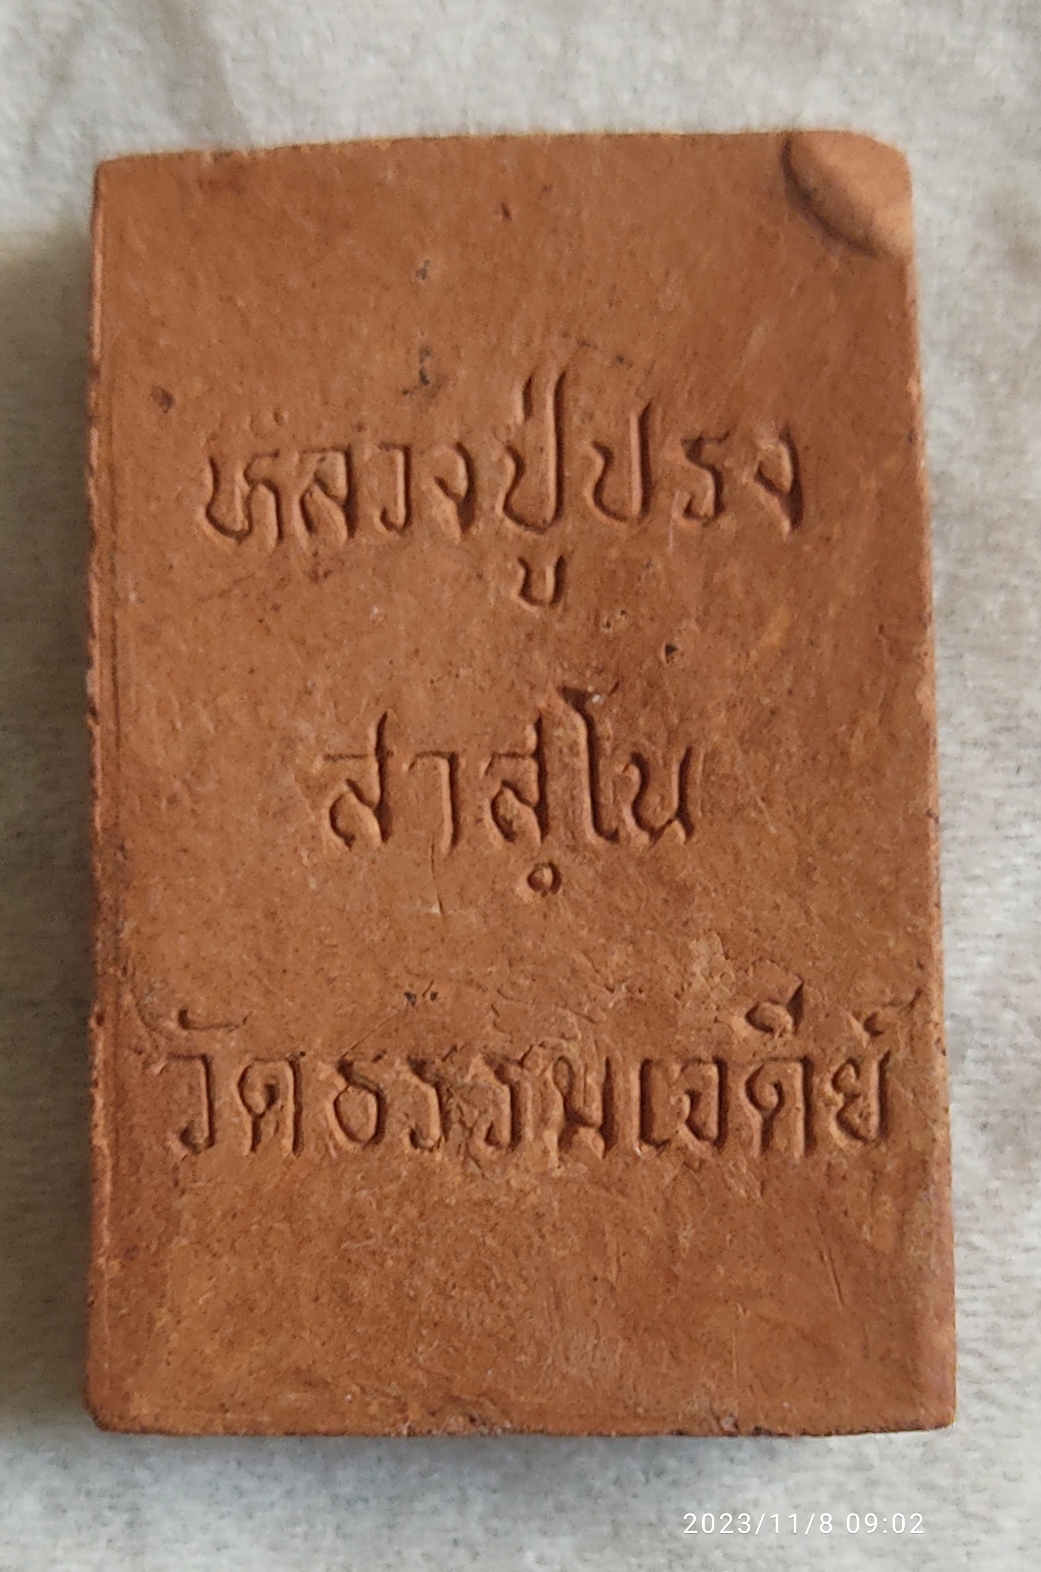 หลวงปู่ปรง
สาสุโน
วัดธรรมเจดีย์
2023/11/8 09:02